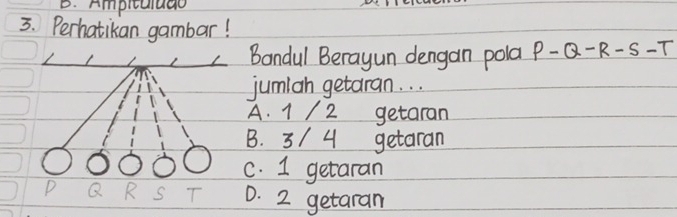 B. Amplitudo
3. Perhatikan gambar!
Bandul Berayun dengan pola P-Q-R-S-T
jumlah getaran...
A. 1/2 getaran
B. 3/4 getaran
C. 1 getaran
D. 2 getaran
P Q R S T